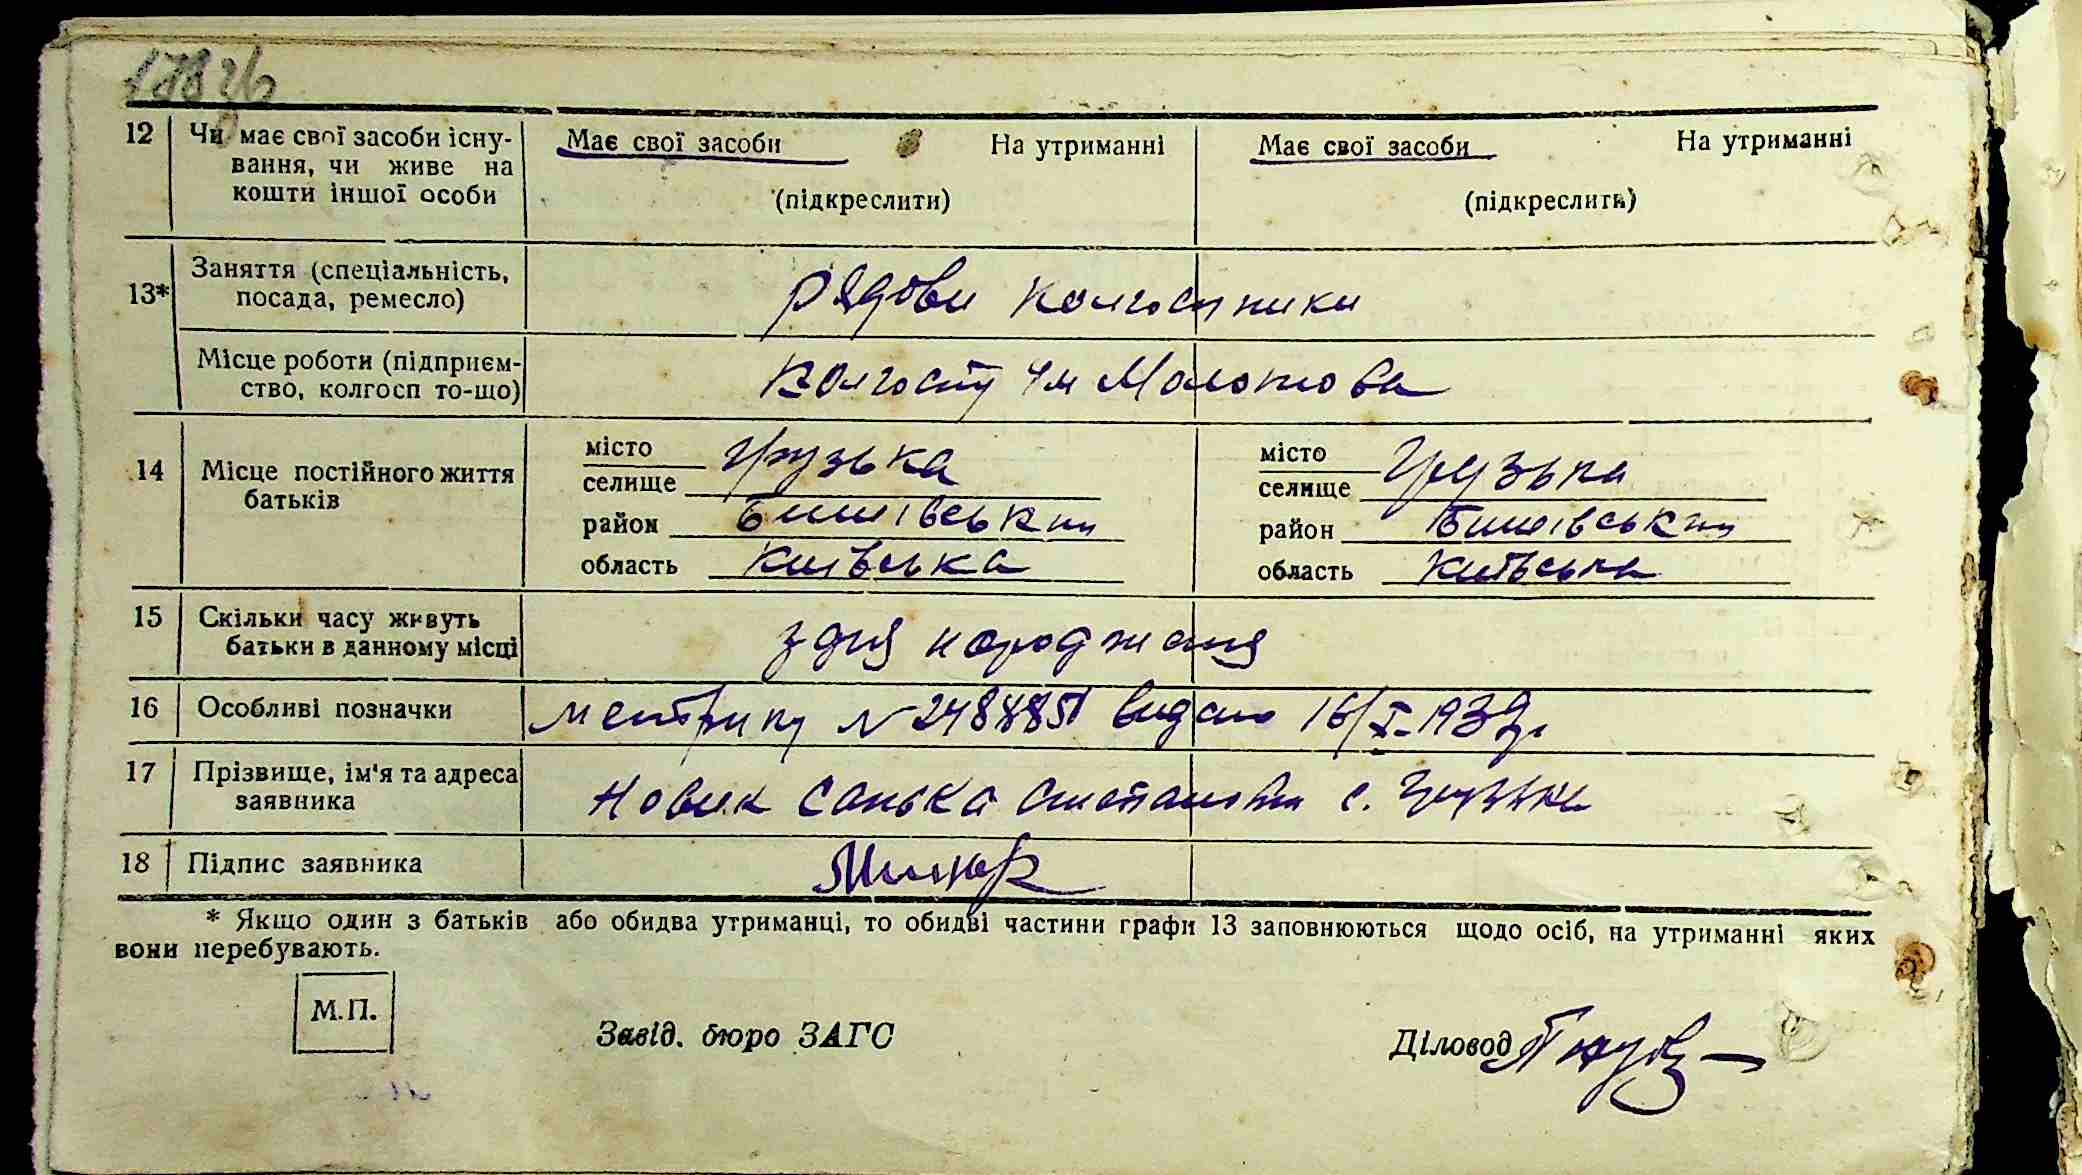 12 Чи має свої засоби існу-
вання, чи живе на
кошти іншої особи
Має свої засоби На утриманні
(підкреслити)
Має свої засоби На утриманні
(підкреслить)
13* Заняття (спеціальність,
посада, ремесло)
рядови колгоспники
Місце роботи (підприєм-
ство, колгосп то-що)
Колгосп Ім Молотова
14 Місце постійного життя
батьків
місто
селище Грузька
район Бишівський
область Київська
місто
селище Грузька
район Бишівський
область Київська
15 Скільки часу живуть
батьки в данному місці
з дня народження
16 Особливі позначки
метрику № видано 16/X-1939р
17 Прізвище, ім'я та адреса
заявника
Новик Санька с. Грузька
18 Підпис заявника
* Якщо один з батьків або обидва утриманці, то обидві частини графи 13 заповнюються щодо осіб, на утриманні яких
вони перебувають.
М.П.
Завід. бюро ЗАГС
Діловод